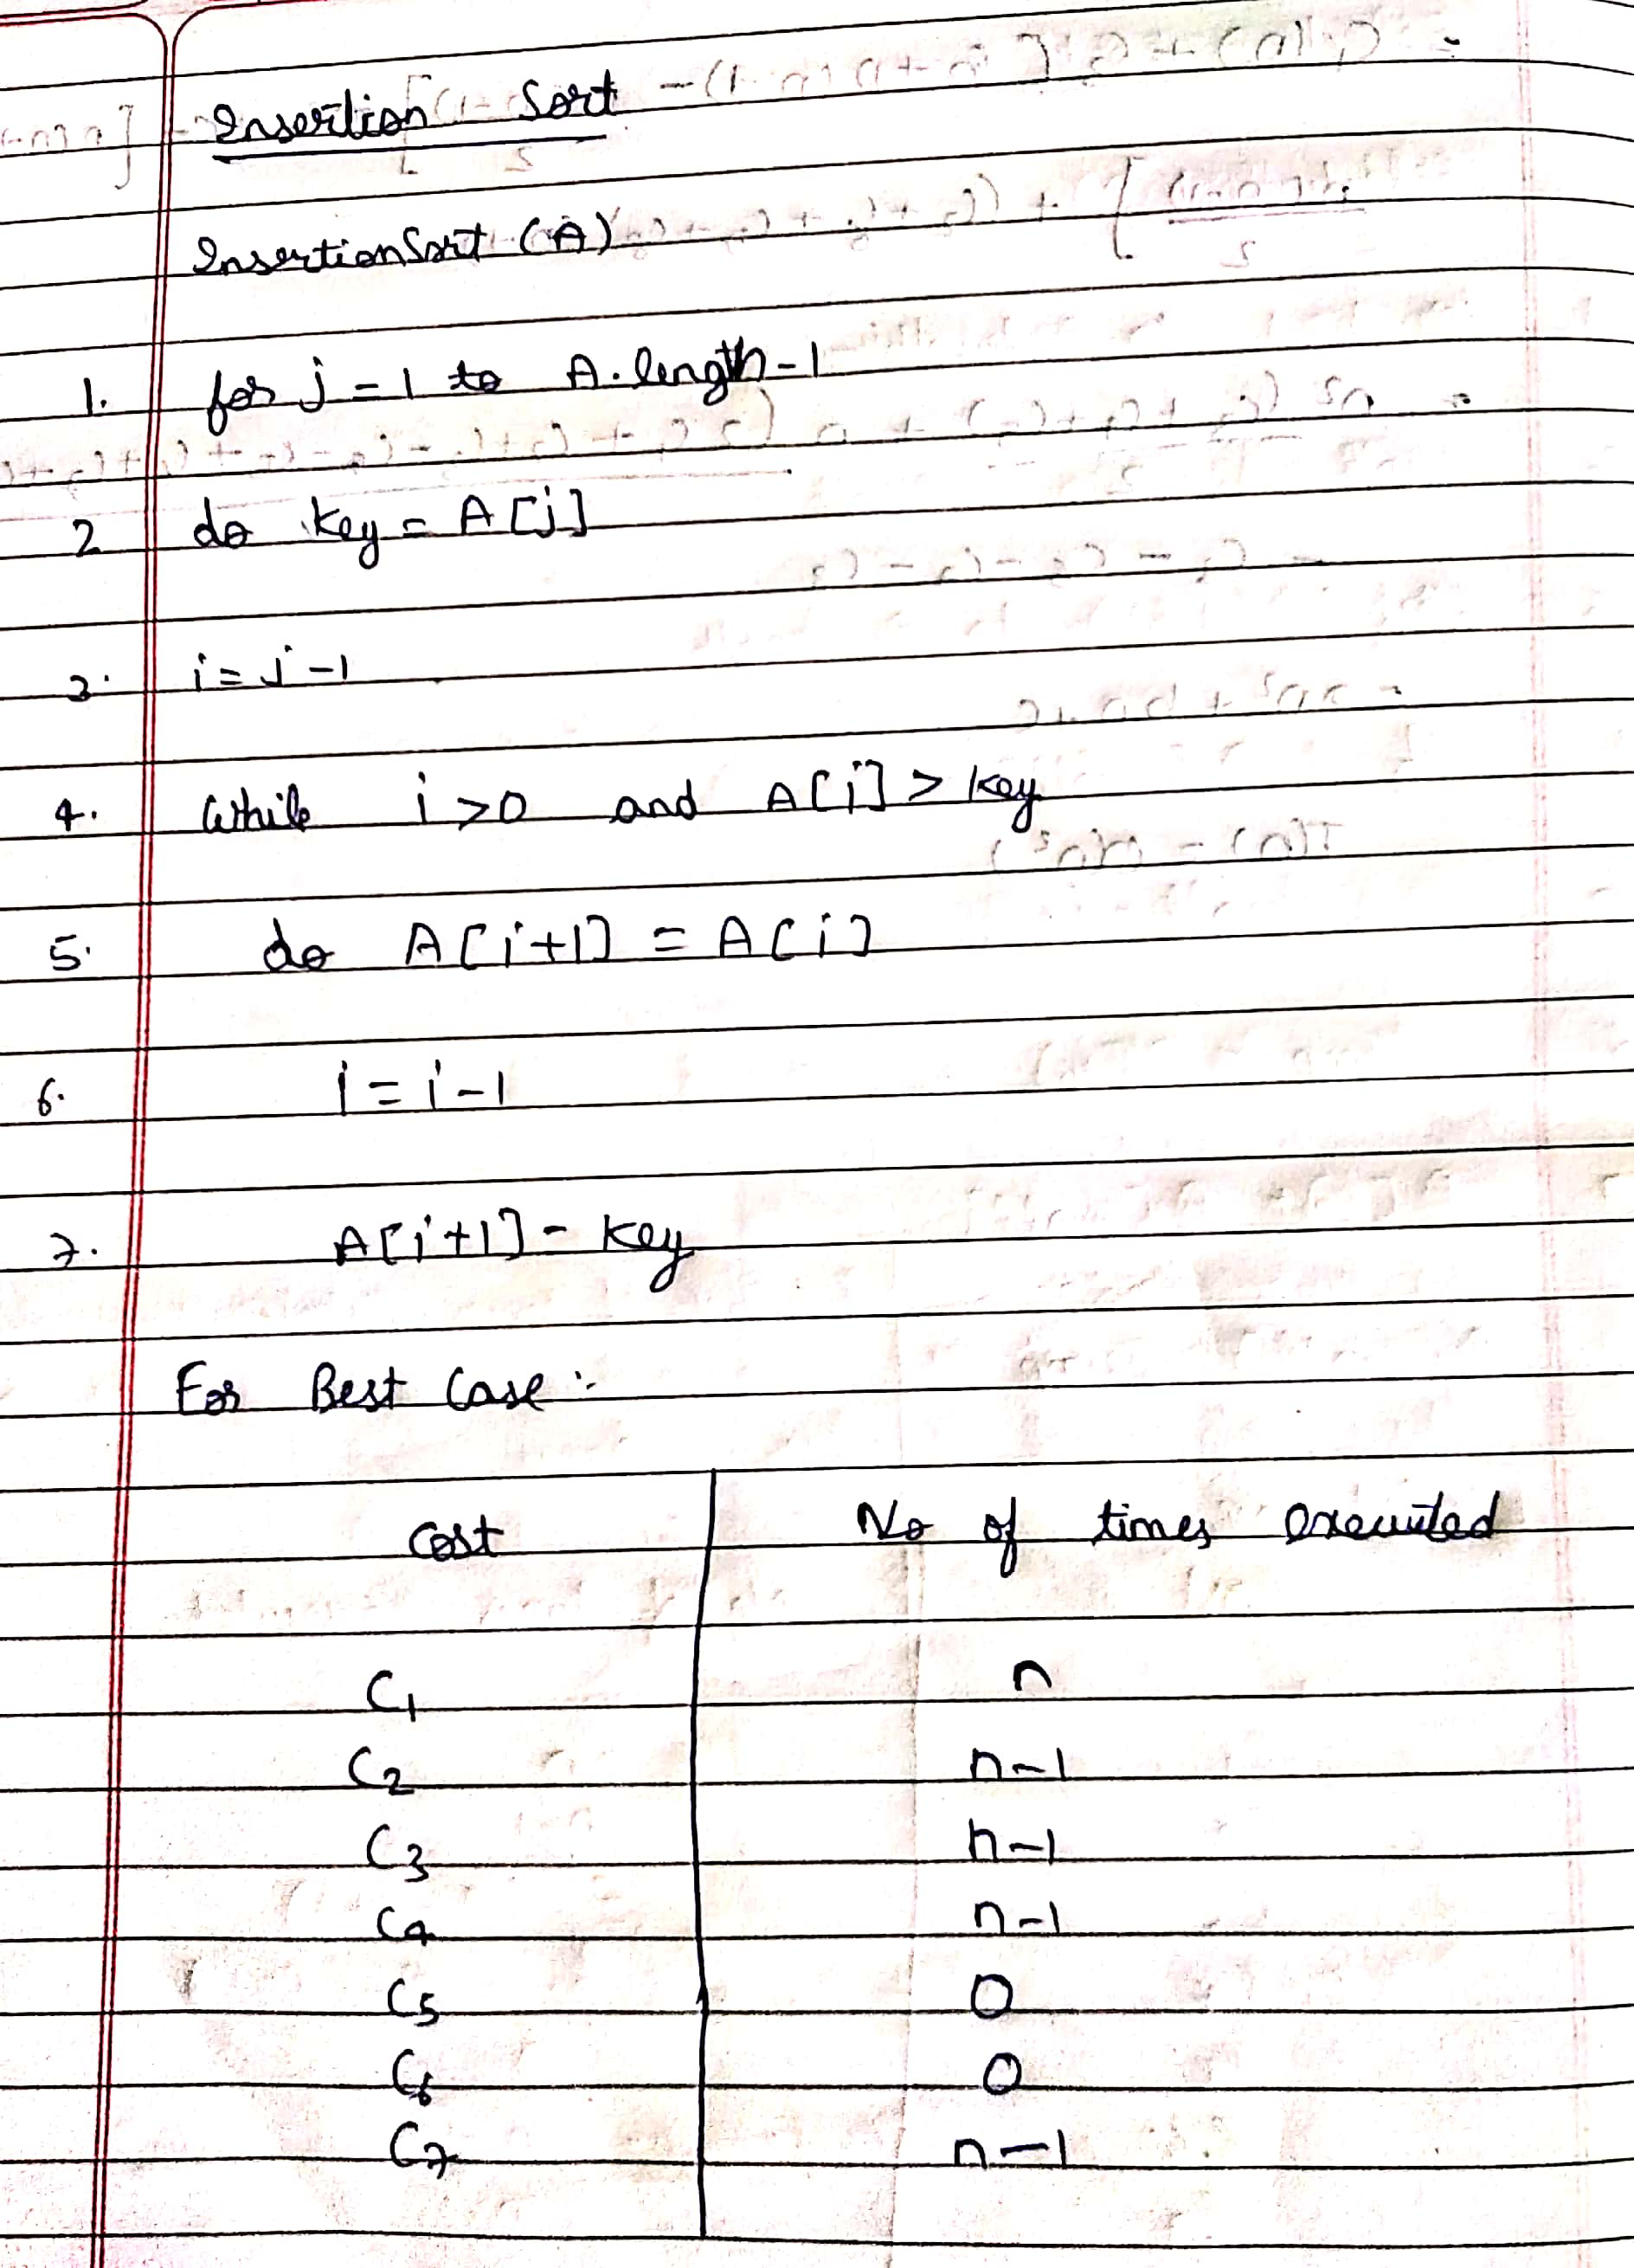 Insertion Sort
InsertionSort (A)
1. for j = 1 to A.length-1
2 do key = A[j]
3. i = j-1
4. While i >0 and A[i] > key
5. do A[i+1] = A[i]
6. i = i-1
7. A[i+1] = key
For Best Case :-
Cost No of times executed
C1 n
C2 n-1
C3 n-1
C4 n-1
C5 0
C6 0
C7 n-1